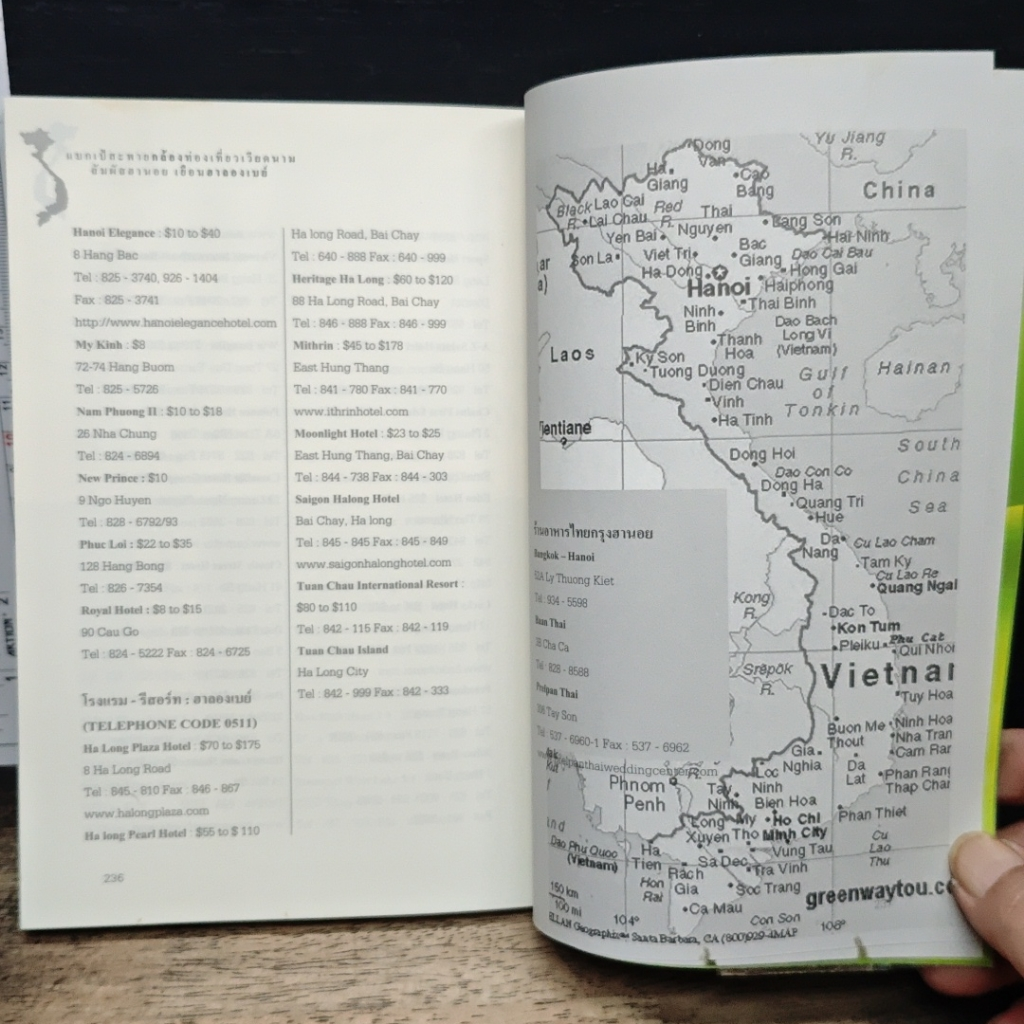 แบกเป้สะพายกล้องท่องเที่ยวเวียดนาม
สัมผัสฮานอย เยือนฮาลองเบย์
Hanoi Elegance : $10 to $40
8 Hang Bac
Tel : 825 - 3740, 926 - 1404
Fax : 825 - 3741
http://www.hanoielegancehotel.com
My Kinh : $8
72-74 Hang Buom
Tel : 825 - 5726
Nam Phuong II : $10 to $18
26 Nha Chung
Tel : 824 - 6894
New Prince : $10
9 Ngo Huyen
Tel : 828 - 6792/93
Phuc Loi : $22 to $35
128 Hang Bong
Tel : 826 - 7354
Royal Hotel : $8 to $15
90 Cau Go
Tel : 824 - 5222 Fax : 824 - 6725
โรงแรม - รีสอร์ท : ฮาลองเบย์
(TELEPHONE CODE 0511)
Ha Long Plaza Hotel : $70 to $175
8 Ha Long Road
Tel : 845 - 810 Fax : 846 - 867
www.halongplaza.com
Ha long Pearl Hotel : $55 to $ 110
Ha long Road, Bai Chay
Tel : 640 - 888 Fax : 640 - 999
Heritage Ha Long : $60 to $120
88 Ha Long Road, Bai Chay
Tel : 846 - 888 Fax : 846 - 999
Mithrin : $45 to $178
East Hung Thang
Tel : 841 - 780 Fax : 841 - 770
www.ithrinhotel.com
Moonlight Hotel : $23 to $25
East Hung Thang, Bai Chay
Tel : 844 - 738 Fax : 844 - 303
Saigon Halong Hotel
Bai Chay, Ha long
Tel : 845 - 845 Fax : 845 - 849
www.saigonhalonghotel.com
Tuan Chau International Resort :
$80 to $110
Tel : 842 - 115 Fax : 842 - 119
Tuan Chau Island
Ha Long City
Tel : 842 - 999 Fax : 842 - 333
236
Yu Jiang
R.
China
Dong
Van
Ha
Giang
Cao
Bang
Black
R.
Lao Cai
Red
R.
Lai Chau
Thai
Nguyen
Lang Son
Yen Bai
Hai Ninh
Son La
Viet Tri
Bac
Giang
Dao Cai Bau
Ha Dong
Hong Gai
Hanoi
Haiphong
Thai Binh
Ninh
Binh
Dao Bach
Long Vi
(Vietnam)
Thanh
Hoa
Laos
Ky Son
Tuong Duong
Dien Chau
Vinh
Ha Tinh
Gulf
of
Tonkin
Hainan
Vientiane
South
China
Sea
Dong Hoi
Dao Con Co
Dong Ha
Quang Tri
Hue
Da
Nang
Cu Lao Cham
Tam Ky
Cu Lao Re
Quang Ngai
ร้านอาหารไทยกรุงฮานอย
Bangkok - Hanoi
52A Ly Thuong Kiet
Tel : 934 - 5598
Baan Thai
3B Cha Ca
Tel : 828 - 8588
Thai
Tay Son
Tel : 537 - 6960-1 Fax : 537 - 6962
Kong
R.
Srêpôk
R.
Dac To
Kon Tum
Pleiku
Phu Cat
Qui Nhon
Vietnam
Tuy Hoa
Buon Me
Thout
Ninh Hoa
Nha Tran
Cam Ran
Gia
Nghia
Da
Lat
Phan Rang
Thap Cham
Phnom
Penh
Loc
Ninh
Tay
Ninh
Bien Hoa
Phan Thiet
Long
Xuyen
My
Tho
Ho Chi
Minh City
Cu
Lao
Thu
Dao Phu Quoc
(Vietnam)
Ha
Tien
Sa Dec
Vung Tau
Rach
Gia
Tra Vinh
Hon
Rai
Soc Trang
Ca Mau
Con Son
greenwaytou.co
150 km
100 mi
104°
108°
Santa Barbara, CA (800)929-4MAP